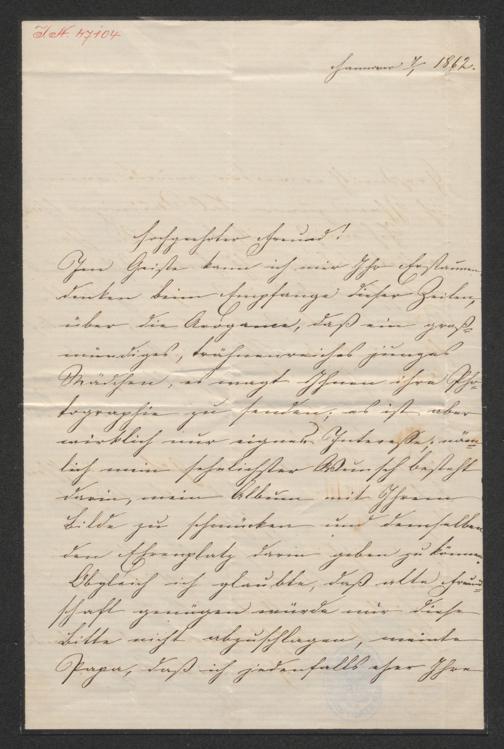 I.N. 47104
Hannover 7/ 1862.
Hochgeehrter Freund!
Im Geiste kann ich mir Ihr Erstaunen
denken beim Empfange dieser Zeilen,
über die Arroganz, daß ein groß-
mündiges, thränenreiches junges
Mädchen, es wagt Ihnen ihre Pho-
tographie zu senden; es ist aber
wirklich nur eignes Interesse, näm-
lich mein sehnlichster Wunsch besteht
darin, mein Album mit Ihrem
Bilde zu schmücken und demselben
den Ehrenplatz darin geben zu können.
Obgleich ich glaubte, daß alte Freund-
schaft genügen würde mir diese
Bitte nicht abzuschlagen, meinte
Papa, daß ich jedenfalls eher Ihre